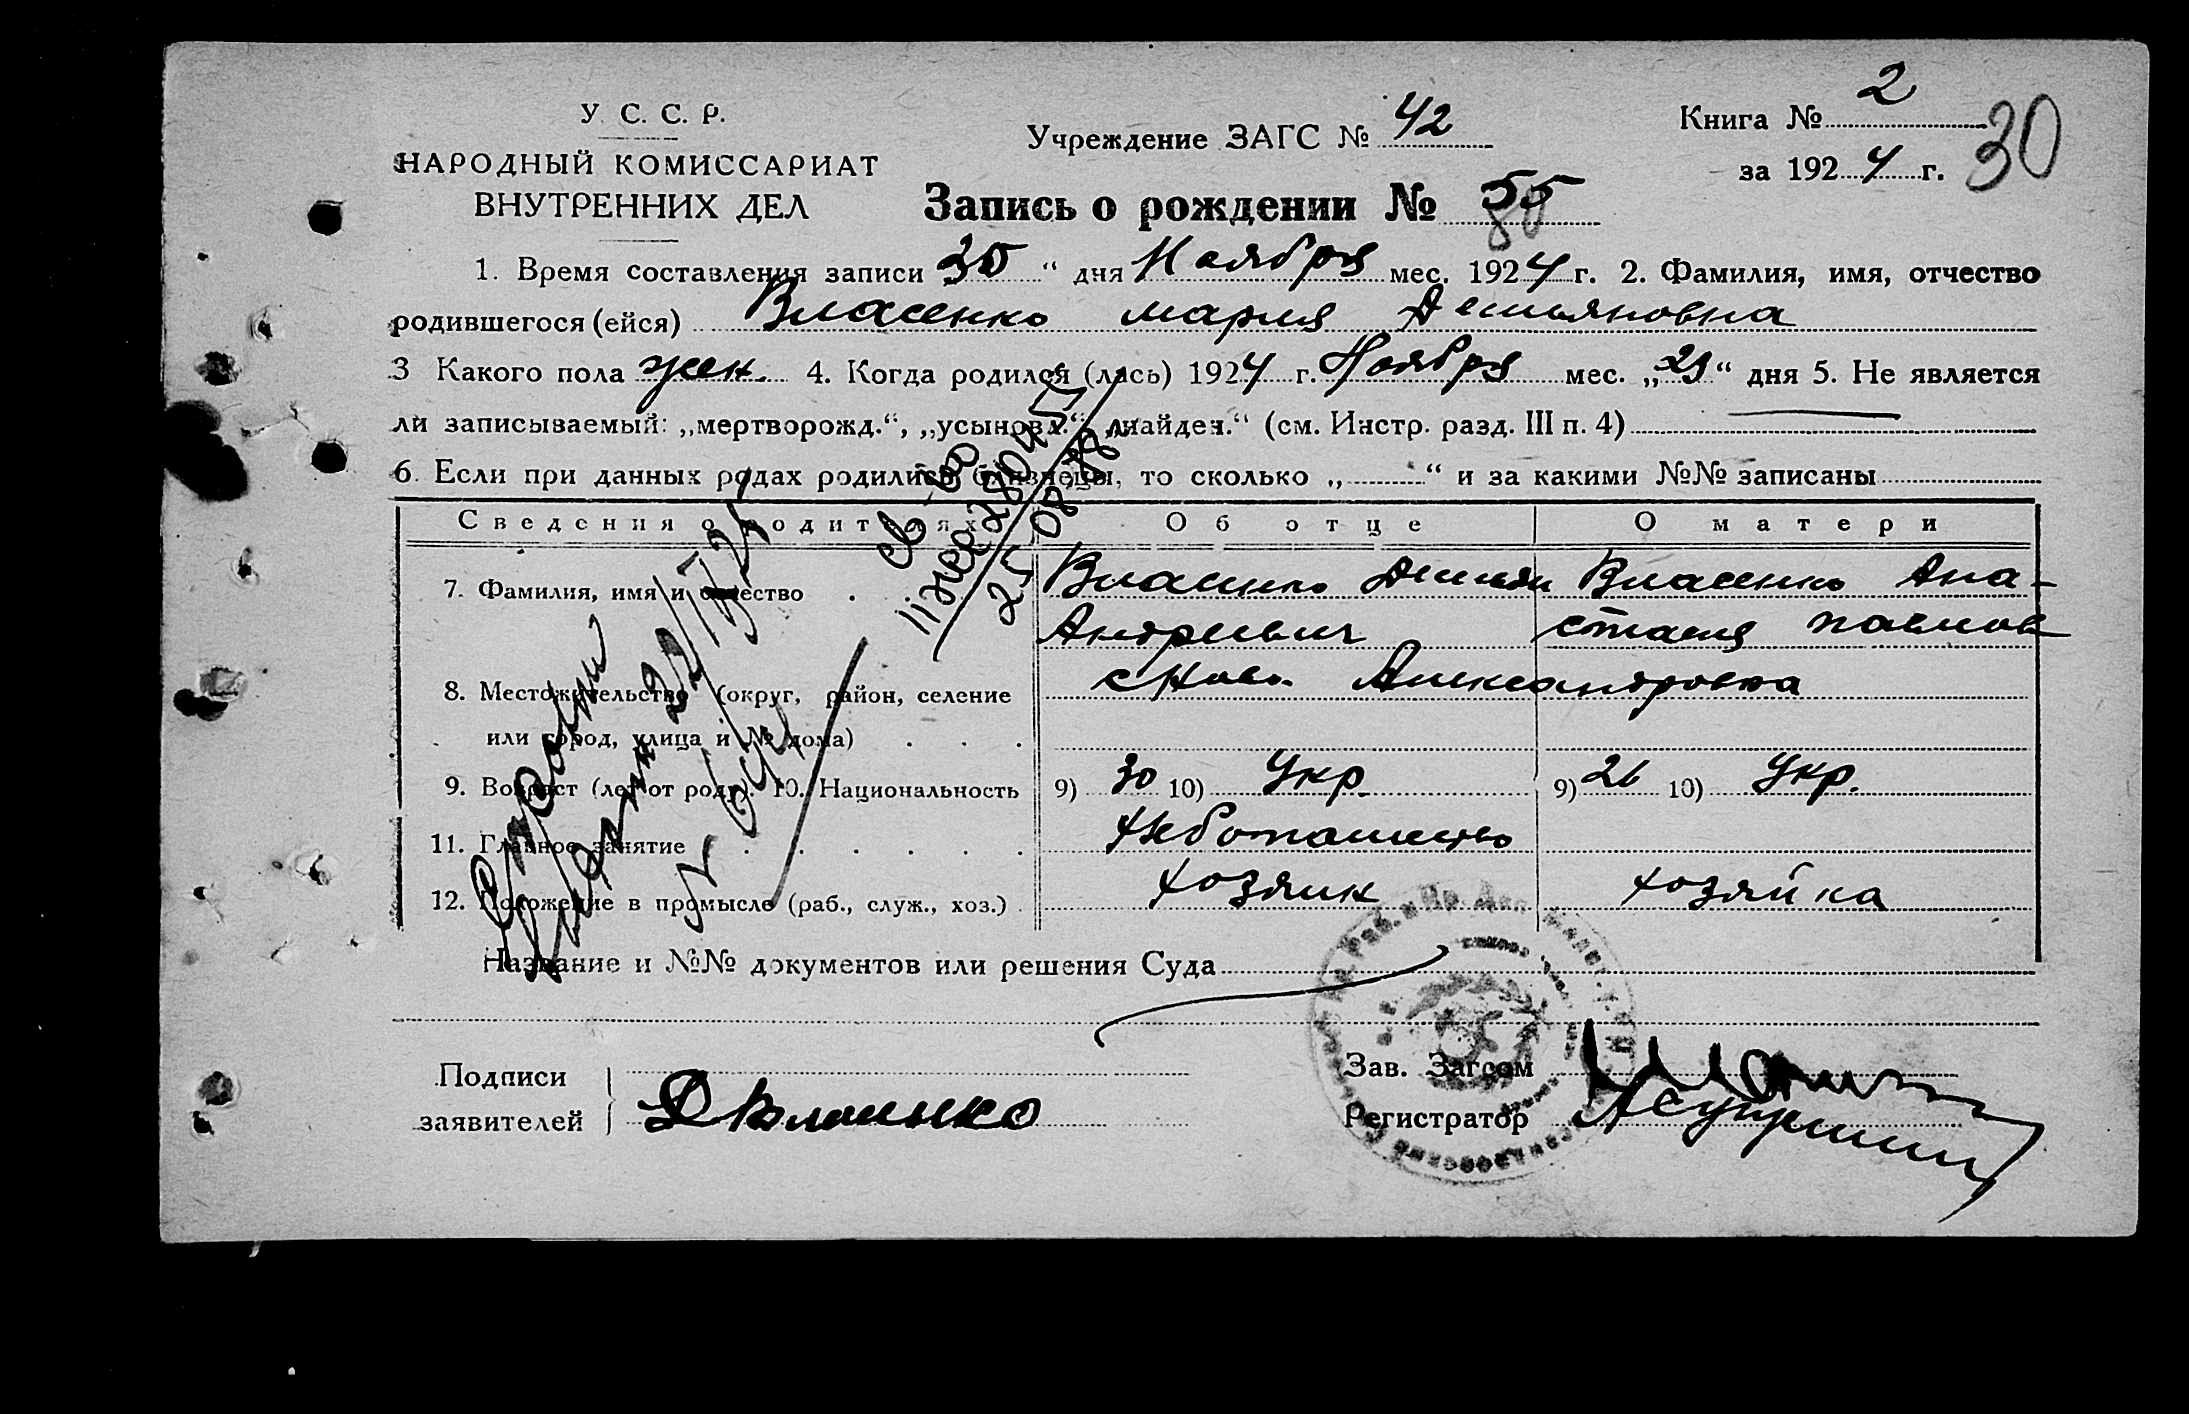 У. С. С. Р.
НАРОДНЫЙ КОМИССАРИАТ
ВНУТРЕННИХ ДЕЛ
Учреждение ЗАГС № 42
Книга № 2
за 1924 г.
30
Запись о рождении № 55
80
1. Время составления записи 30 “ дня Ноября мес. 1924 г. 2. Фамилия, имя, отчество
родившегося (ейся) Власенко Мария Демьяновна
3 Какого пола жен. 4. Когда родился (лась) 1924 г. Ноября мес. „ “ дня 5. Не является
ли записываемый: „мертворожд.“, „усыновл.“, „найден.“ (см. Инстр. разд. III п. 4)
6. Если при данных родах родились близнецы, то сколько „ “ и за какими №№ записаны
Сведения о родителях Об отце О матери
7. Фамилия, имя и отчество Власенко Демьян Власенко Ана-
Андреевич стасия Павлов
8. Местожительство (округ, район, селение Александровка
или город, улица и № дома)
9. Возраст (лет от роду). 10. Национальность 9) 30 10) Укр. 9) 26 10) Укр.
11. Главное занятие Хлебопашество
12. Положение в промысле (раб., служ., хоз.) хозяин хозяйка
Название и №№ документов или решения Суда
Подписи
заявителей Д Власенко
Зав. Загсом
Регистратор